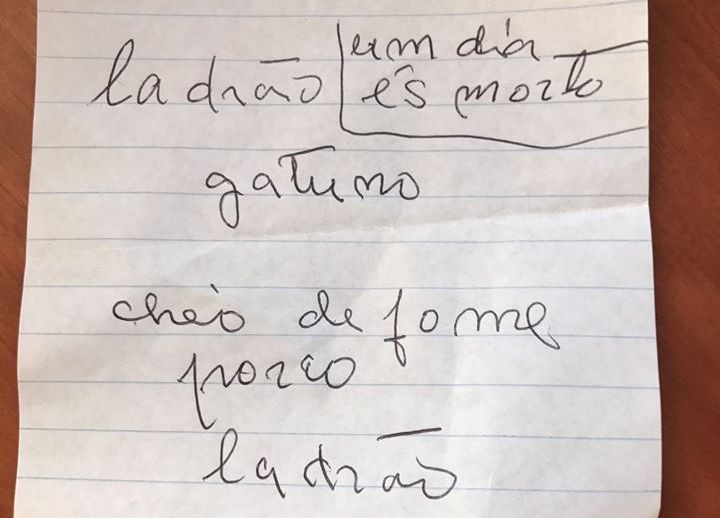 ladrão
um dia
és morto
gatuno
cheio de fome
porco
ladrão